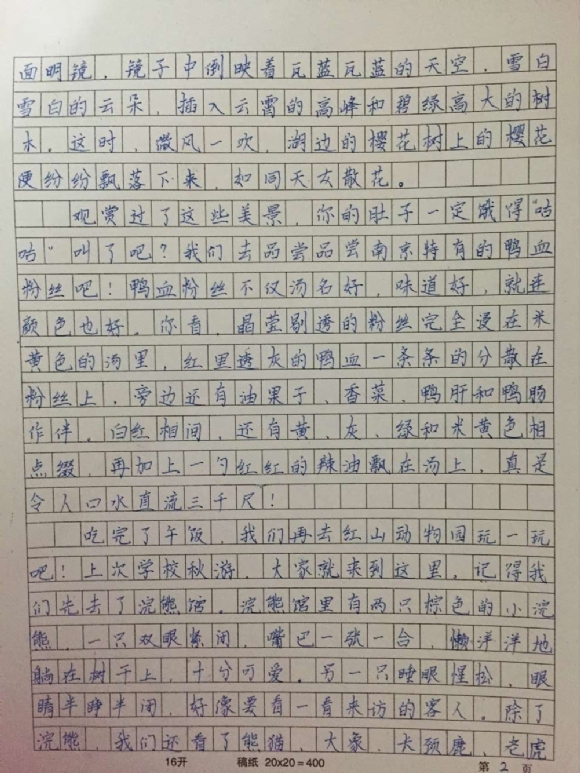 面明镜，镜子中倒映着瓦蓝瓦蓝的天空，雪白
雪白的云朵，插入云霄的高峰和碧绿高大的树
木。这时，微风一吹，湖边的樱花树上的樱花
便纷纷飘落下来，如同天女散花。
观赏过了这些美景，你的肚子一定饿得“咕
咕”叫了吧？我们去品尝品尝南京特有的鸭血
粉丝吧！鸭血粉丝不仅汤名好，味道好，就连
颜色也好。你看，晶莹剔透的粉丝完全浸在米
黄色的汤里，红里透灰的鸭血一条条的分散在
粉丝上，旁边还有油果子、香菜、鸭肝和鸭肠
作伴。白红相间，还有黄、灰、绿和米黄色相
点缀，再加上一勺红红的辣油飘在汤上，真是
令人口水直流三千尺！
吃完了午饭，我们再去红山动物园玩一玩
吧！上次学校秋游，大家就来到这里。记得我
们先去了浣熊馆。浣熊馆里有两只棕色的小浣
熊，一只双眼紧闭，嘴巴一张一合，懒洋洋地
躺在树干上，十分可爱。另一只睡眼惺松，眼
睛半睁半闭，好像要看一看来访的客人。除了
浣熊，我们还看了熊猫，大象，长颈鹿，老虎
16开 稿纸 20×20=400 第 2 页